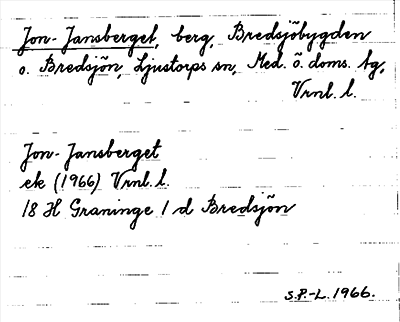 Jon-Jansberget, berg, Bredsjöbygden
o. Bredsjön, Ljustorps sn, Med. ö. doms. tg,
Vrnl. l.
Jon-Jansberget
ek (1966) Vrnl. l.
18 H Graninge 1 d Bredsjön
S.P.-L. 1966.